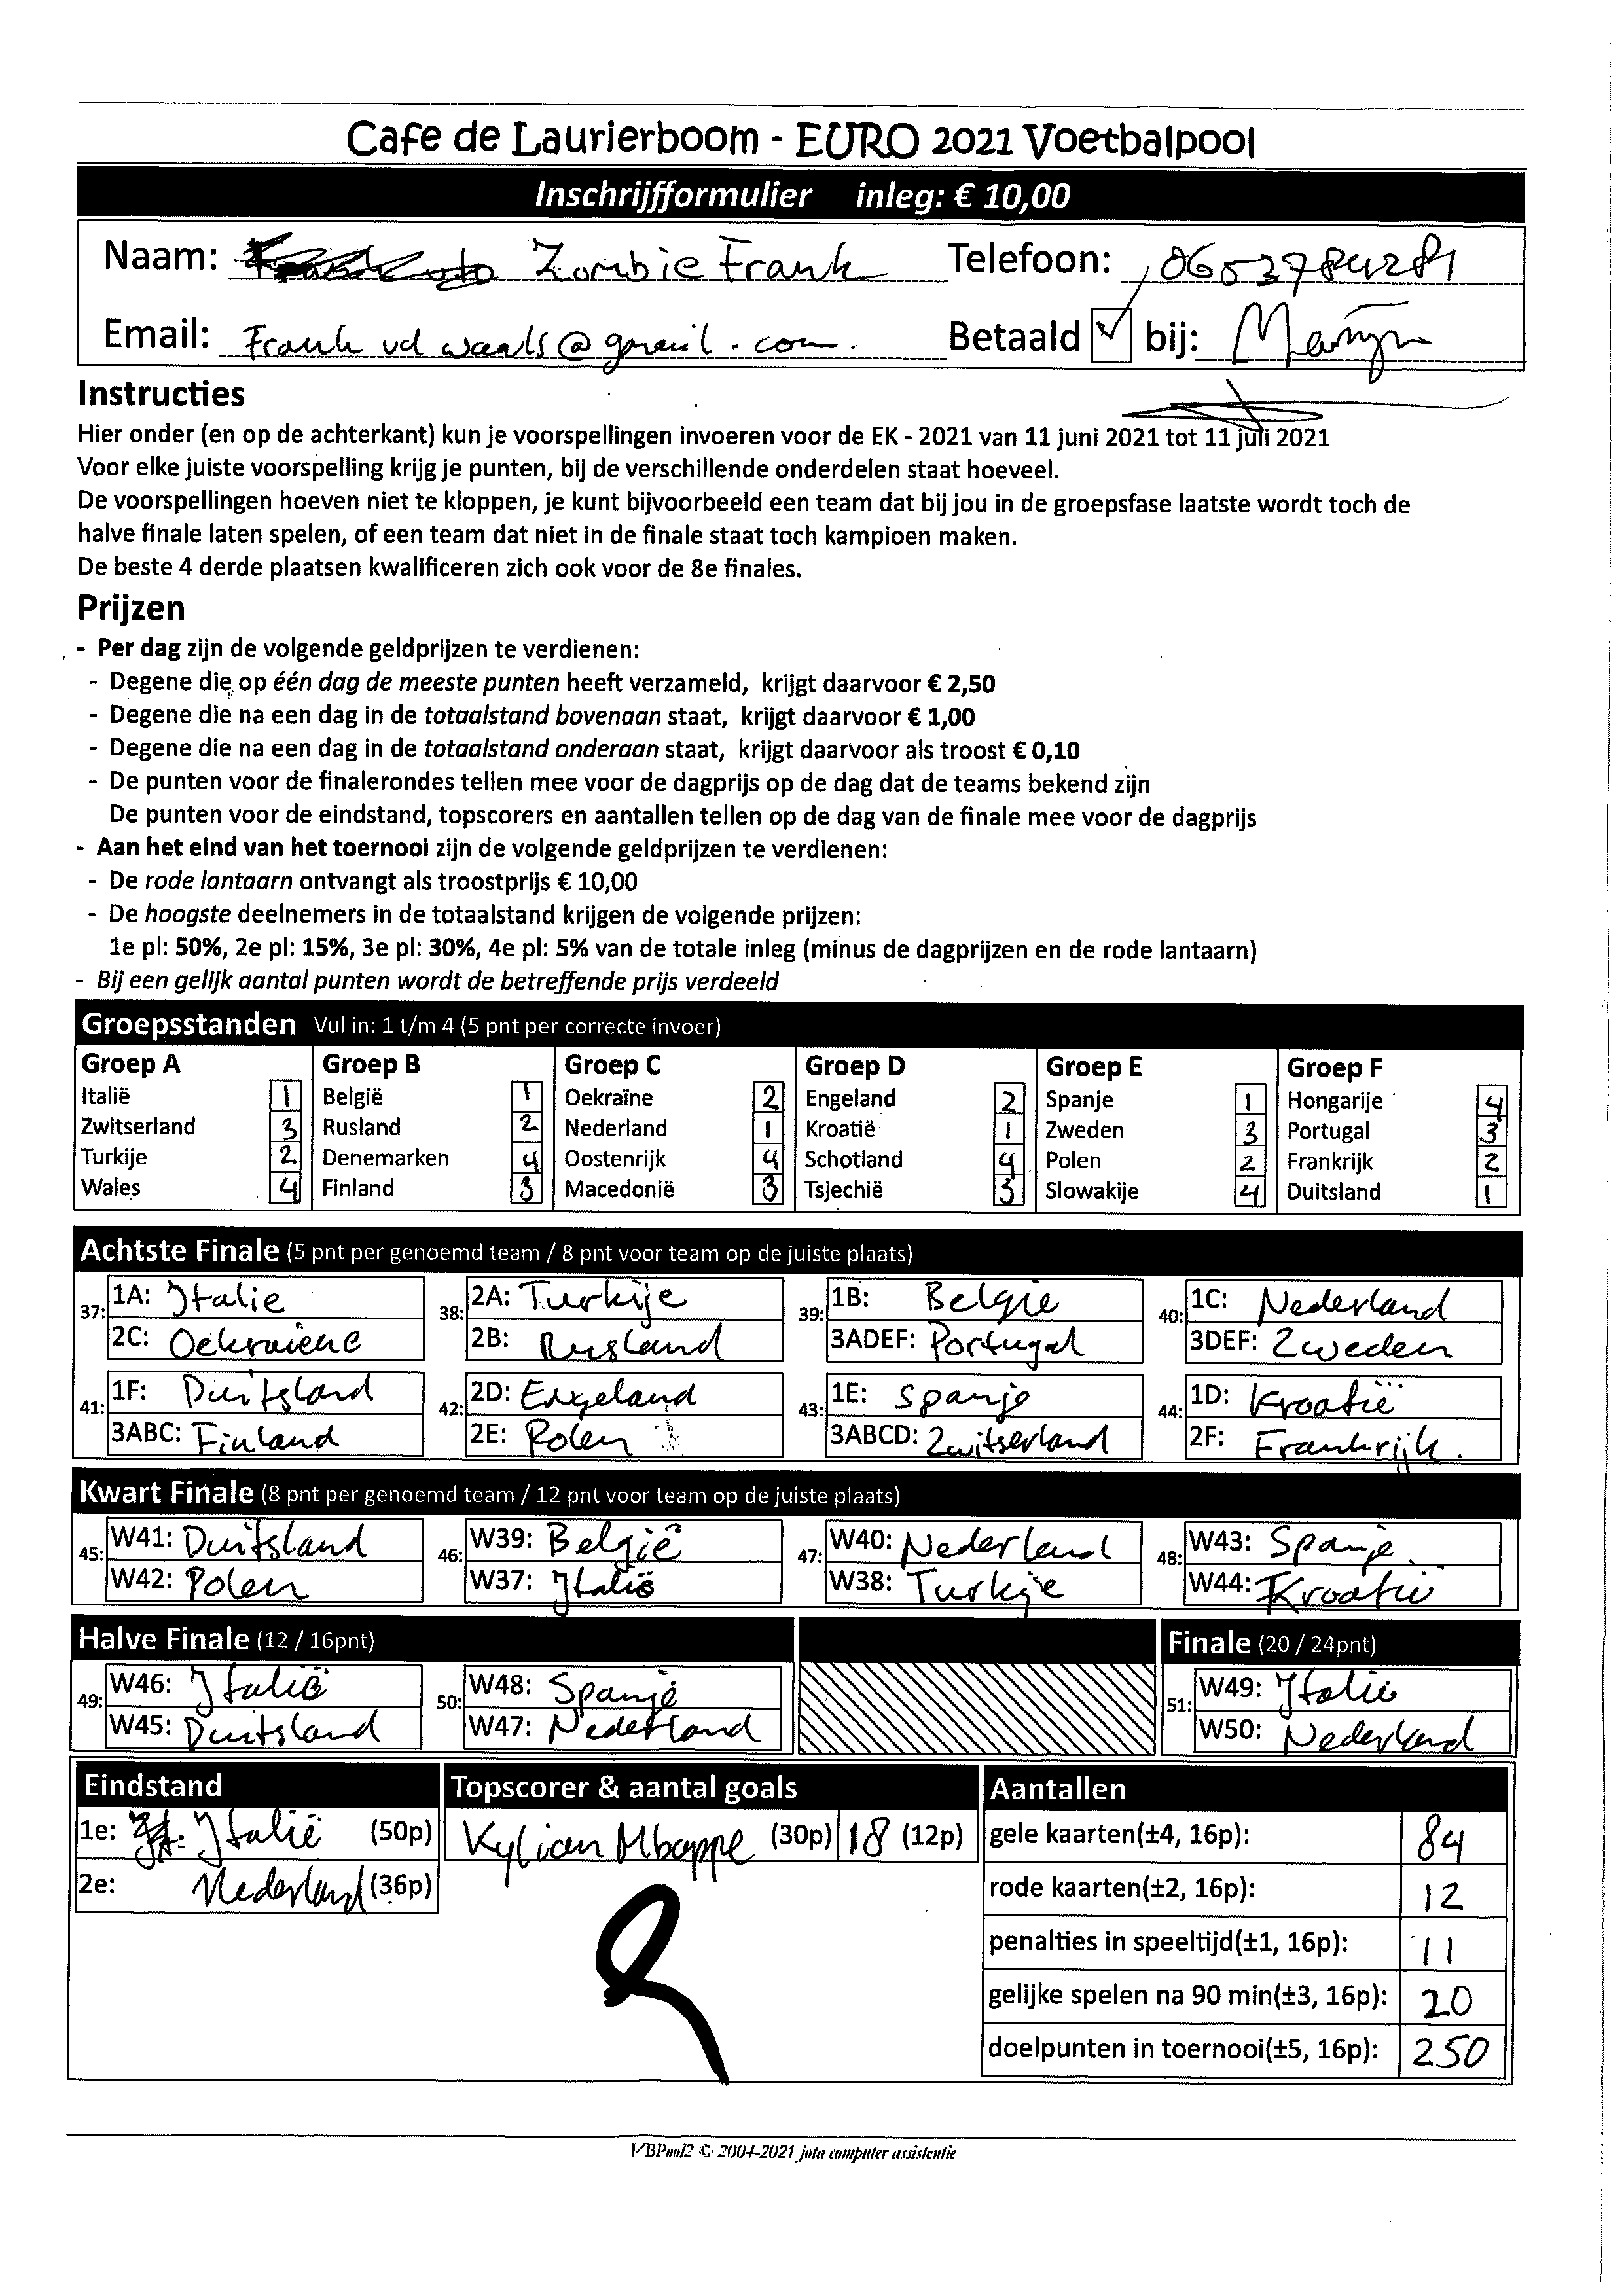 Cafe de Laurierboom - EURO 2021 Voetbalpool
Inschrijfformulier inleg: € 10,00
Naam: Zombie Frank Telefoon: 0653784281
Email: Frank vd waals@gmail.com. Betaald ✓ bij: Martijn
Instructies
Hier onder (en op de achterkant) kun je voorspellingen invoeren voor de EK - 2021 van 11 juni 2021 tot 11 juli 2021
Voor elke juiste voorspelling krijg je punten, bij de verschillende onderdelen staat hoeveel.
De voorspellingen hoeven niet te kloppen, je kunt bijvoorbeeld een team dat bij jou in de groepsfase laatste wordt toch de
halve finale laten spelen, of een team dat niet in de finale staat toch kampioen maken.
De beste 4 derde plaatsen kwalificeren zich ook voor de 8e finales.
Prijzen
- Per dag zijn de volgende geldprijzen te verdienen:
- Degene die op één dag de meeste punten heeft verzameld, krijgt daarvoor € 2,50
- Degene die na een dag in de totaalstand bovenaan staat, krijgt daarvoor € 1,00
- Degene die na een dag in de totaalstand onderaan staat, krijgt daarvoor als troost € 0,10
- De punten voor de finalerondes tellen mee voor de dagprijs op de dag dat de teams bekend zijn
De punten voor de eindstand, topscorers en aantallen tellen op de dag van de finale mee voor de dagprijs
- Aan het eind van het toernooi zijn de volgende geldprijzen te verdienen:
- De rode lantaarn ontvangt als troostprijs € 10,00
- De hoogste deelnemers in de totaalstand krijgen de volgende prijzen:
1e pl: 50%, 2e pl: 15%, 3e pl: 30%, 4e pl: 5% van de totale inleg (minus de dagprijzen en de rode lantaarn)
- Bij een gelijk aantal punten wordt de betreffende prijs verdeeld
Groepsstanden Vul in: 1 t/m 4 (5 pnt per correcte invoer)
Groep A Groep B Groep C Groep D Groep E Groep F
Italië 1 België 1 Oekraïne 2 Engeland 2 Spanje 1 Hongarije 4
Zwitserland 3 Rusland 2 Nederland 1 Kroatië 1 Zweden 3 Portugal 3
Turkije 2 Denemarken 4 Oostenrijk 4 Schotland 4 Polen 2 Frankrijk 2
Wales 4 Finland 3 Macedonië 3 Tsjechië 3 Slowakije 4 Duitsland 1
Achtste Finale (5 pnt per genoemd team / 8 pnt voor team op de juiste plaats)
37: 1A: Italie 38: 2A: Turkije 39: 1B: Belgie 40: 1C: Nederland
2C: Oekraiene 2B: Rusland 3ADEF: Portugal 3DEF: Zweden
41: 1F: Duitsland 42: 2D: Engeland 43: 1E: Spanje 44: 1D: Kroatië
3ABC: Finland 2E: Polen 3ABCD: Zwitserland 2F: Frankrijk.
Kwart Finale (8 pnt per genoemd team / 12 pnt voor team op de juiste plaats)
45: W41: Duitsland 46: W39: België 47: W40: Nederland 48: W43: Spanje.
W42: Polen W37: Italië W38: Turkije W44: Kroatië
Halve Finale (12 / 16pnt) Finale (20 / 24pnt)
49: W46: Italië 50: W48: Spanje 51: W49: Italië
W45: Duitsland W47: Nederland W50: Nederland
Eindstand Topscorer & aantal goals Aantallen
1e: Italië (50p) Kylian Mbappe (30p) 18 (12p) gele kaarten(±4, 16p): 84
2e: Nederland (36p) rode kaarten(±2, 16p): 12
penalties in speeltijd(±1, 16p): 11
gelijke spelen na 90 min(±3, 16p): 20
doelpunten in toernooi(±5, 16p): 250
VBPool2 © 2004-2021 jota computer assistentie